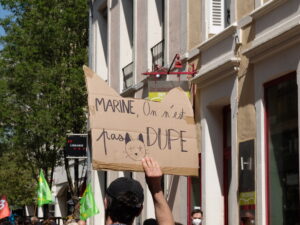 MARINE, On n'est
pas DUPE
H